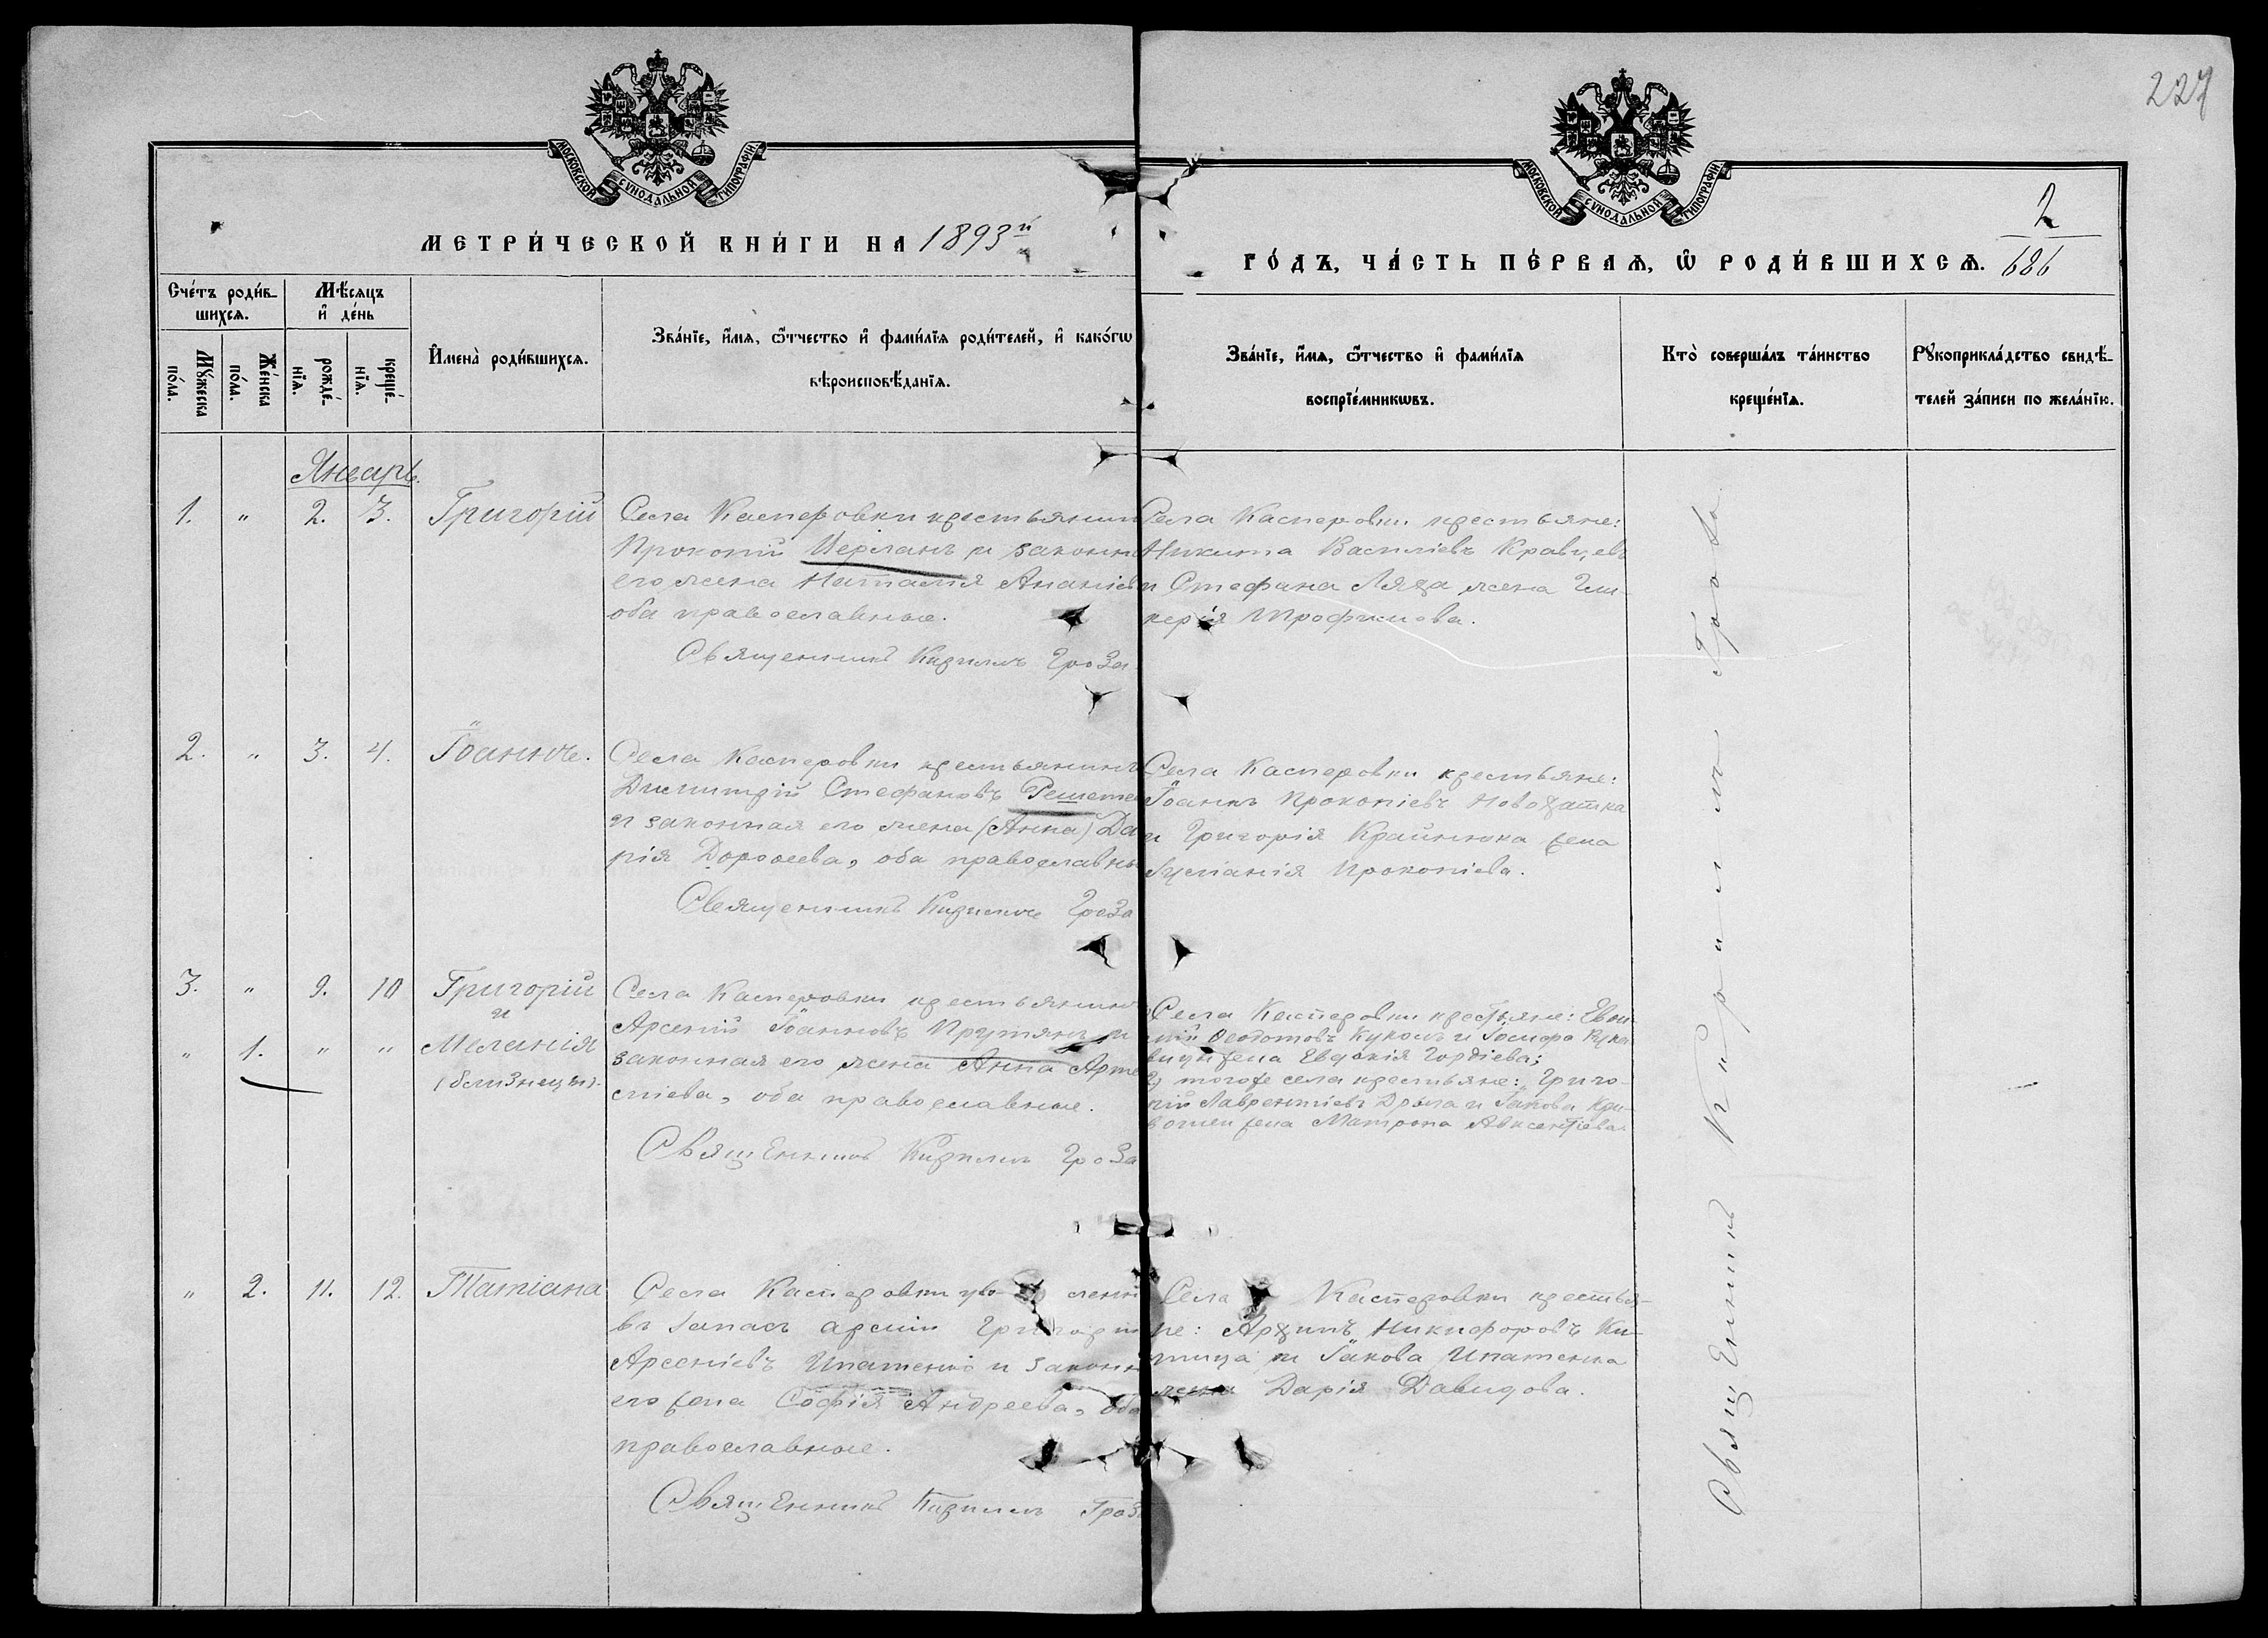 227
МОСКОВСКОЙ СѴНОДАЛЬНОЙ ТИПОГРАФІИ
МОСКОВСКОЙ СѴНОДАЛЬНОЙ ТИПОГРАФІИ
2
686
МЕТРИ́ЧЕСКОЙ КНИ́ГИ НА 1893й
ГО́ДЪ, ЧА́СТЬ ПЕ́РВАЯ, Ѡ РОДИ́ВШИХСѦ.
Сче́тъ роди́в-
шихсѧ.
Мѣ́сѧцъ
и҆ де́нь
Мꙋ́жеска
по́ла.
Же́нска
по́ла.
рожде́-
нїѧ.
креще́-
нїѧ.
И҆мена̀ роди́вшихсѧ.
Зва́нїе, и҆́мѧ, ѻ҆́тчество и҆ фами́лїѧ роди́телей, и҆ како́гѡ
вѣроисповѣ́данїѧ.
Зва́нїе, и҆́мѧ, ѻ҆́тчество и҆ фами́лїѧ
воспрїе́мникѡвъ.
Кто̀ соверша́лъ та́инство
креще́нїѧ.
Рꙋкоприкла́дство свидѣ́-
телей за́писи по жела́нїю.
Январь.
1. " 2. 3. Григорій
Села Касперовки крестьянин
Прокопій и законн
его жена Наталія Ананіев
оба православные.
Священникъ Кириллъ Гроза
Села Касперовки крестьяне:
Никита Василіевъ Кравцевъ
и Стефана жена Гли-
керія Трофимова.
2. " 3. 4. Іоаннъ.
Села Касперовки крестьянинъ
Димитрій Стефановъ Решете
и законная его жена (Анна) Да
рія Дороѳеева, оба православны
Священникъ Кириллъ Гроза
Села Касперовки крестьяне:
Іоаннъ Прокопіевъ
и Григорія Крайнюка жена
Прокопіева.
3. " 9. 10 Григорій
и
" 1. " " Меланія
(близнецы).
Села Касперовки крестьянинъ
Арсеній Іоанновъ Прутянъ и
законная его жена Анна Арте
міева, оба православные.
Священникъ Кириллъ Гроза
Села Касперовки крестьяне:
Ѳеодотовъ и Іосифа
жена Евдокія Гордіева;
2) тогоже села крестьяне: Григо-
рій Лаврентіевъ и Іакова
жена Матрона Авксентіева.
" 2. 11. 12. Татіана
Села Касперовки
въ запасъ арміи Григорій
Арсеніевъ Ипатенко и законн
его жена Софія Андреева, оба
православные.
Священникъ Кириллъ Гроз
Села Касперовки крестья-
не: Архипъ Никифоровъ
и Іакова Ипатенка
жена Дарія Давидова.
Священникъ Кириллъ Гроза